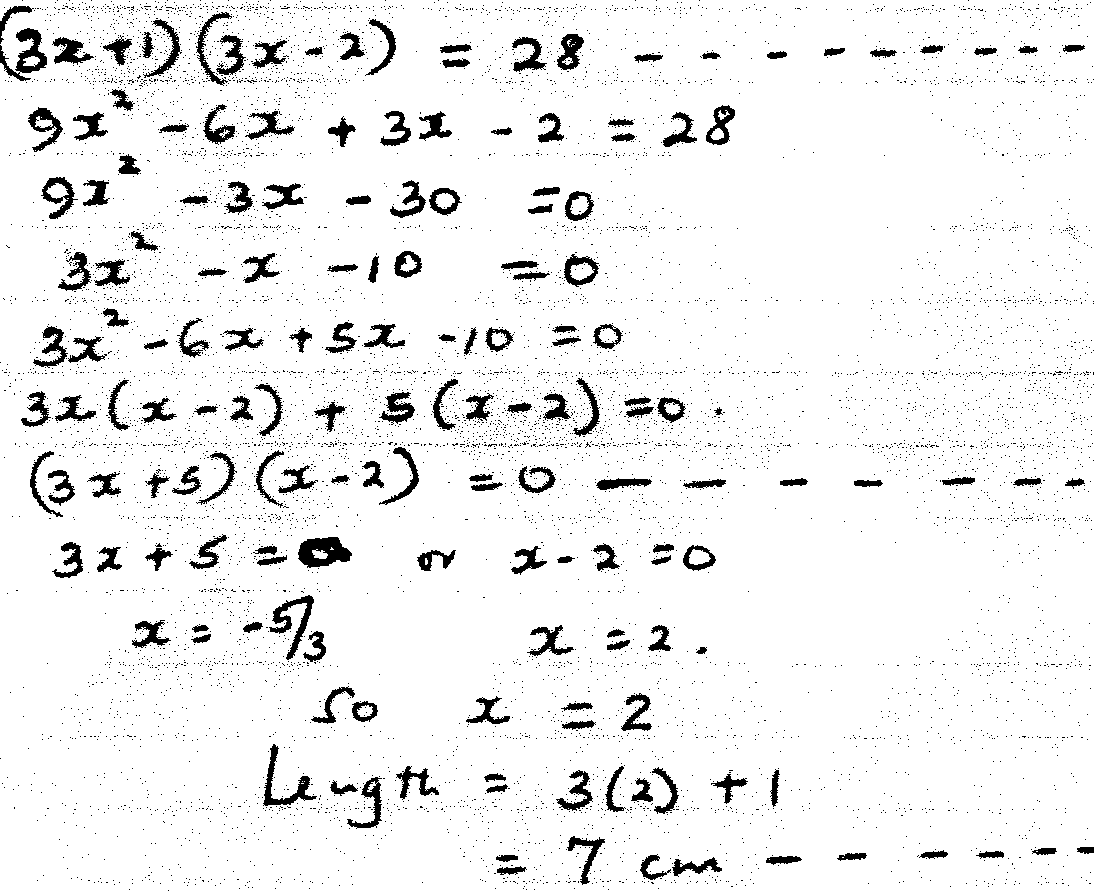 (3x+1)(3x-2) = 28 - - - - - - - - -
9x² - 6x + 3x - 2 = 28
9x² - 3x - 30 = 0
3x² - x - 10 = 0
3x² - 6x + 5x - 10 = 0
3x(x-2) + 5(x-2) = 0.
(3x+5)(x-2) = 0 - - - - - - -
3x + 5 = 0 or x - 2 = 0
x = -5/3 x = 2.
So x = 2
Length = 3(2) + 1
= 7 cm - - - - - -